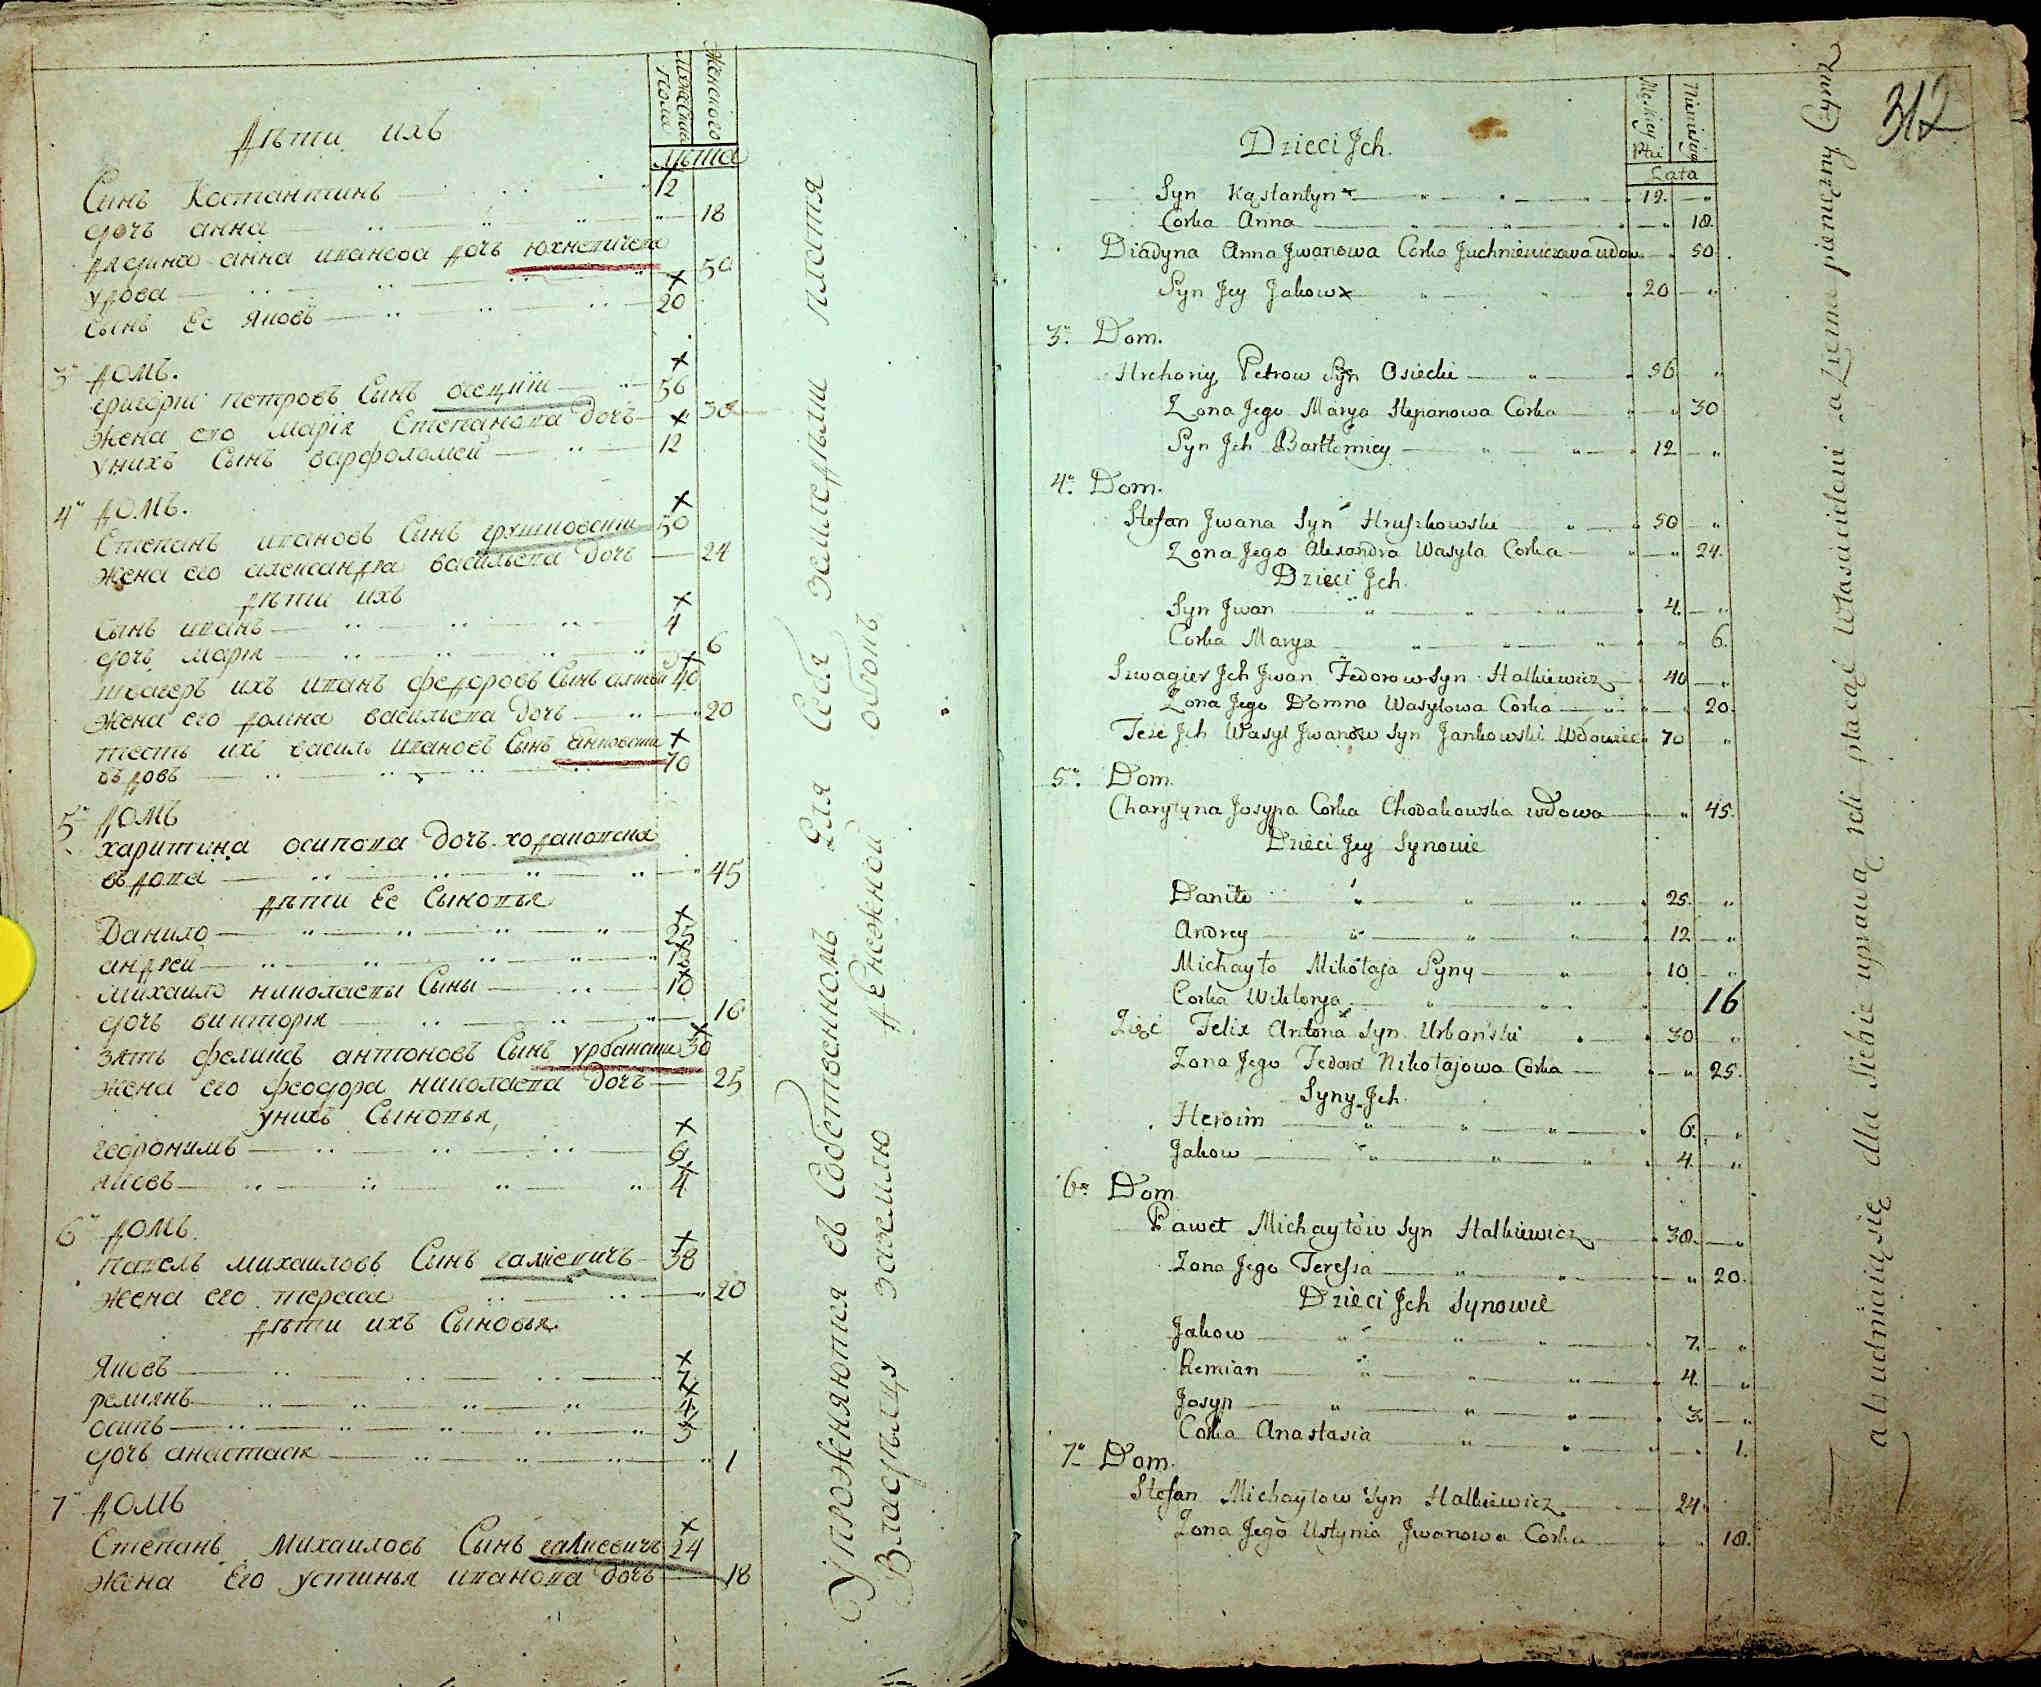 Мужеска Пола
Женского
Лѣта
Дѣти ихъ
Сынъ Костантинъ 12
дочь анна 18
дядина анна иванова дочь юхневичева
удова 50
Сынъ Ее яковъ 20
3й домъ.
григорій петровъ Сынъ осецкій 56
жена его Марія Степанова дочь 30
унихъ Сынъ варфоломей 12
4й домъ.
Степанъ ивановъ Сынъ грушковскій 50
жена его александра васильева дочь 24
дѣти ихъ
Сынъ иванъ 4
дочь марія 6
швагеръ ихъ иванъ федоровъ Сынъ 40
жена его домна васильева дочь 20
тесть ихъ василь ивановъ Сынъ янковскій
вдовъ 70
5й домъ
харитина осипова дочь ходаковска
вдова 45
дѣти Ее Сыновья
Данило 25
андрей 12
михаило николаевы Сыны 10
дочь викторія 16
зять феликсъ антоновъ Сынъ урбански 30
жена его феодора николаева дочь 25
унихъ Сыновья
геронимъ 6
яковъ 4
6й домъ.
павелъ михаиловъ Сынъ галкевичъ 38
жена его тереса 20
дѣти ихъ Сыновья
яковъ 7
ремянъ 4
осипъ 3
дочь анастасія 1
7й домъ
Степанъ Михаиловъ Сынъ галкевичъ 24
жена Его устинья иванова дочь 18
Упрожняются въ Собственномъ для Себя земледѣліи платя
Владѣльцу за землю денежной оброкъ
312
Męzkiey Płci
Niewieściey
Lata
Dzieci Jch.
Syn Kąstantyn 12.
Corka Anna 18.
Diadyna Anna Jwanowa Corka Juchniewiczowa wdow. 50.
Syn Jey Jakow 20
3. Dom.
Hrehoriy Petrow Syn Osiecki 56
Zona Jego Marya Stepanowa Corka 30
Syn Jch Bartłomiey 12
4. Dom.
Stefan Jwana Syn Hruszkowski 50
Zona Jego Alexandra Wasyla Corka 24.
Dzieci Jch.
Syn Jwan 4.
Corka Marya 6.
Szwagier Jch Jwan Fedorow Syn Halkiewicz 40
Zona Jego Domna Wasylowa Corka 20.
Teść Jch Wasyl Jwanow Syn Jankowski Wdowiec 70
5. Dom.
Charytyna Josypa Corka Chodakowska wdowa 45.
Dzieci Jey Synowie
Daniło 25.
Andrey 12
Michayło Mikołaja Syny 10
Corka Wiktorya 16
Zięć Felix Antona Syn Urbański 30
Zona Jego Fedora Nikołajowa Corka 25.
Syny Jch.
Heroim 6.
Jakow 4.
6. Dom
Paweł Michayłow Syn Halkiewicz 38.
Zona Jego Teressa 20.
Dzieci Jch Synowie
Jakow 7.
Remian 4.
Josyp 3.
Corka Anastasia 1.
7. Dom.
Stefan Michayłow Syn Halkiewicz 24.
Zona Jego Ustynia Jwanowa Corka 18.
zatrudniaiąsię dla Siebie uprawą roli płacąc właścicielowi za Ziemię pieniężny Czynsz